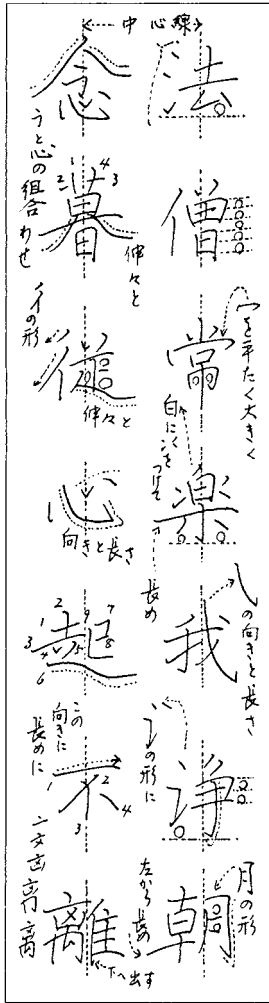 中心線
法
僧
常
を平たく大きく
楽
白に
つけて
長め
我
の向きと長さ
浄
の形に
朝
月の形
左から長め
念
と心の組合わせ
暮
1 2 3 4
伸々と
従
イの形
伸々と
心
向きと長さ
起
1 2 3 4 5 6 7 8 9
不
1 2 3 4
この向きに長めに
離
下へ出す